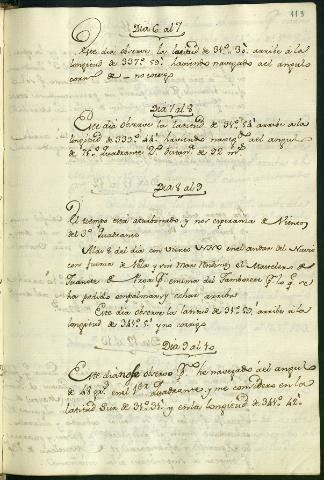 113
Dia 6 al 7
Este dia observe la latitud de 31º. 30'. arribe â la
longitud de 337º. 59'. haviendo navegado al angulo
corr de no corrijo
Dia 7 al 8
Este dia observe la latitud de 31º. 51' arribe â la
longitud de 339º. 44'. haviendo naveg.do al angulo
de 71º. quadrante 2º. distan.a de 92 m.s
Dia 8 al 9
El tiempo está acelajado y nos esperanza de Vientos
del 3º. quadrante
A las 8 del dia con viento en el andar del Navio
con fuerza de Vela y sin Mar el Mastelero de
Juanete de Proa encima del Tamborete q.e lo q.e se
ha podido empalmar y echar arriba
Este dia observe la latitud de 31º. 29'. arribe â la
longitud de 341º. 5' y no corrijo
Dia 9 al 10
Este dia no se observo q.e he navegado al angulo
de 48 gr.s en el 1.er quadrante, y me considero en la
latitud Sur de 31º. 31'. y en la longitud de 341º. 42'.